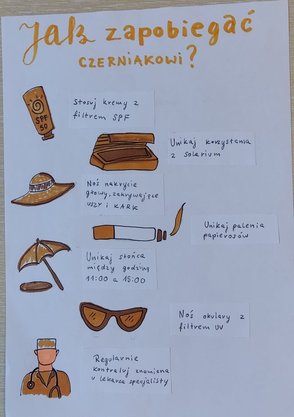 Jak zapobiegać
CZERNIAKOWI?
SPF
50
Stosuj kremy z
filtrem SPF
Unikaj korzystania
z solarium
Noś nakrycie
głowy, zakrywające
uszy i KARK
Unikaj palenia
papierosów
Unikaj słońca
między godziną
11:00 a 15:00
Noś okulary z
filtrem UV
Regularnie
kontroluj znamiona
u lekarza specjalisty